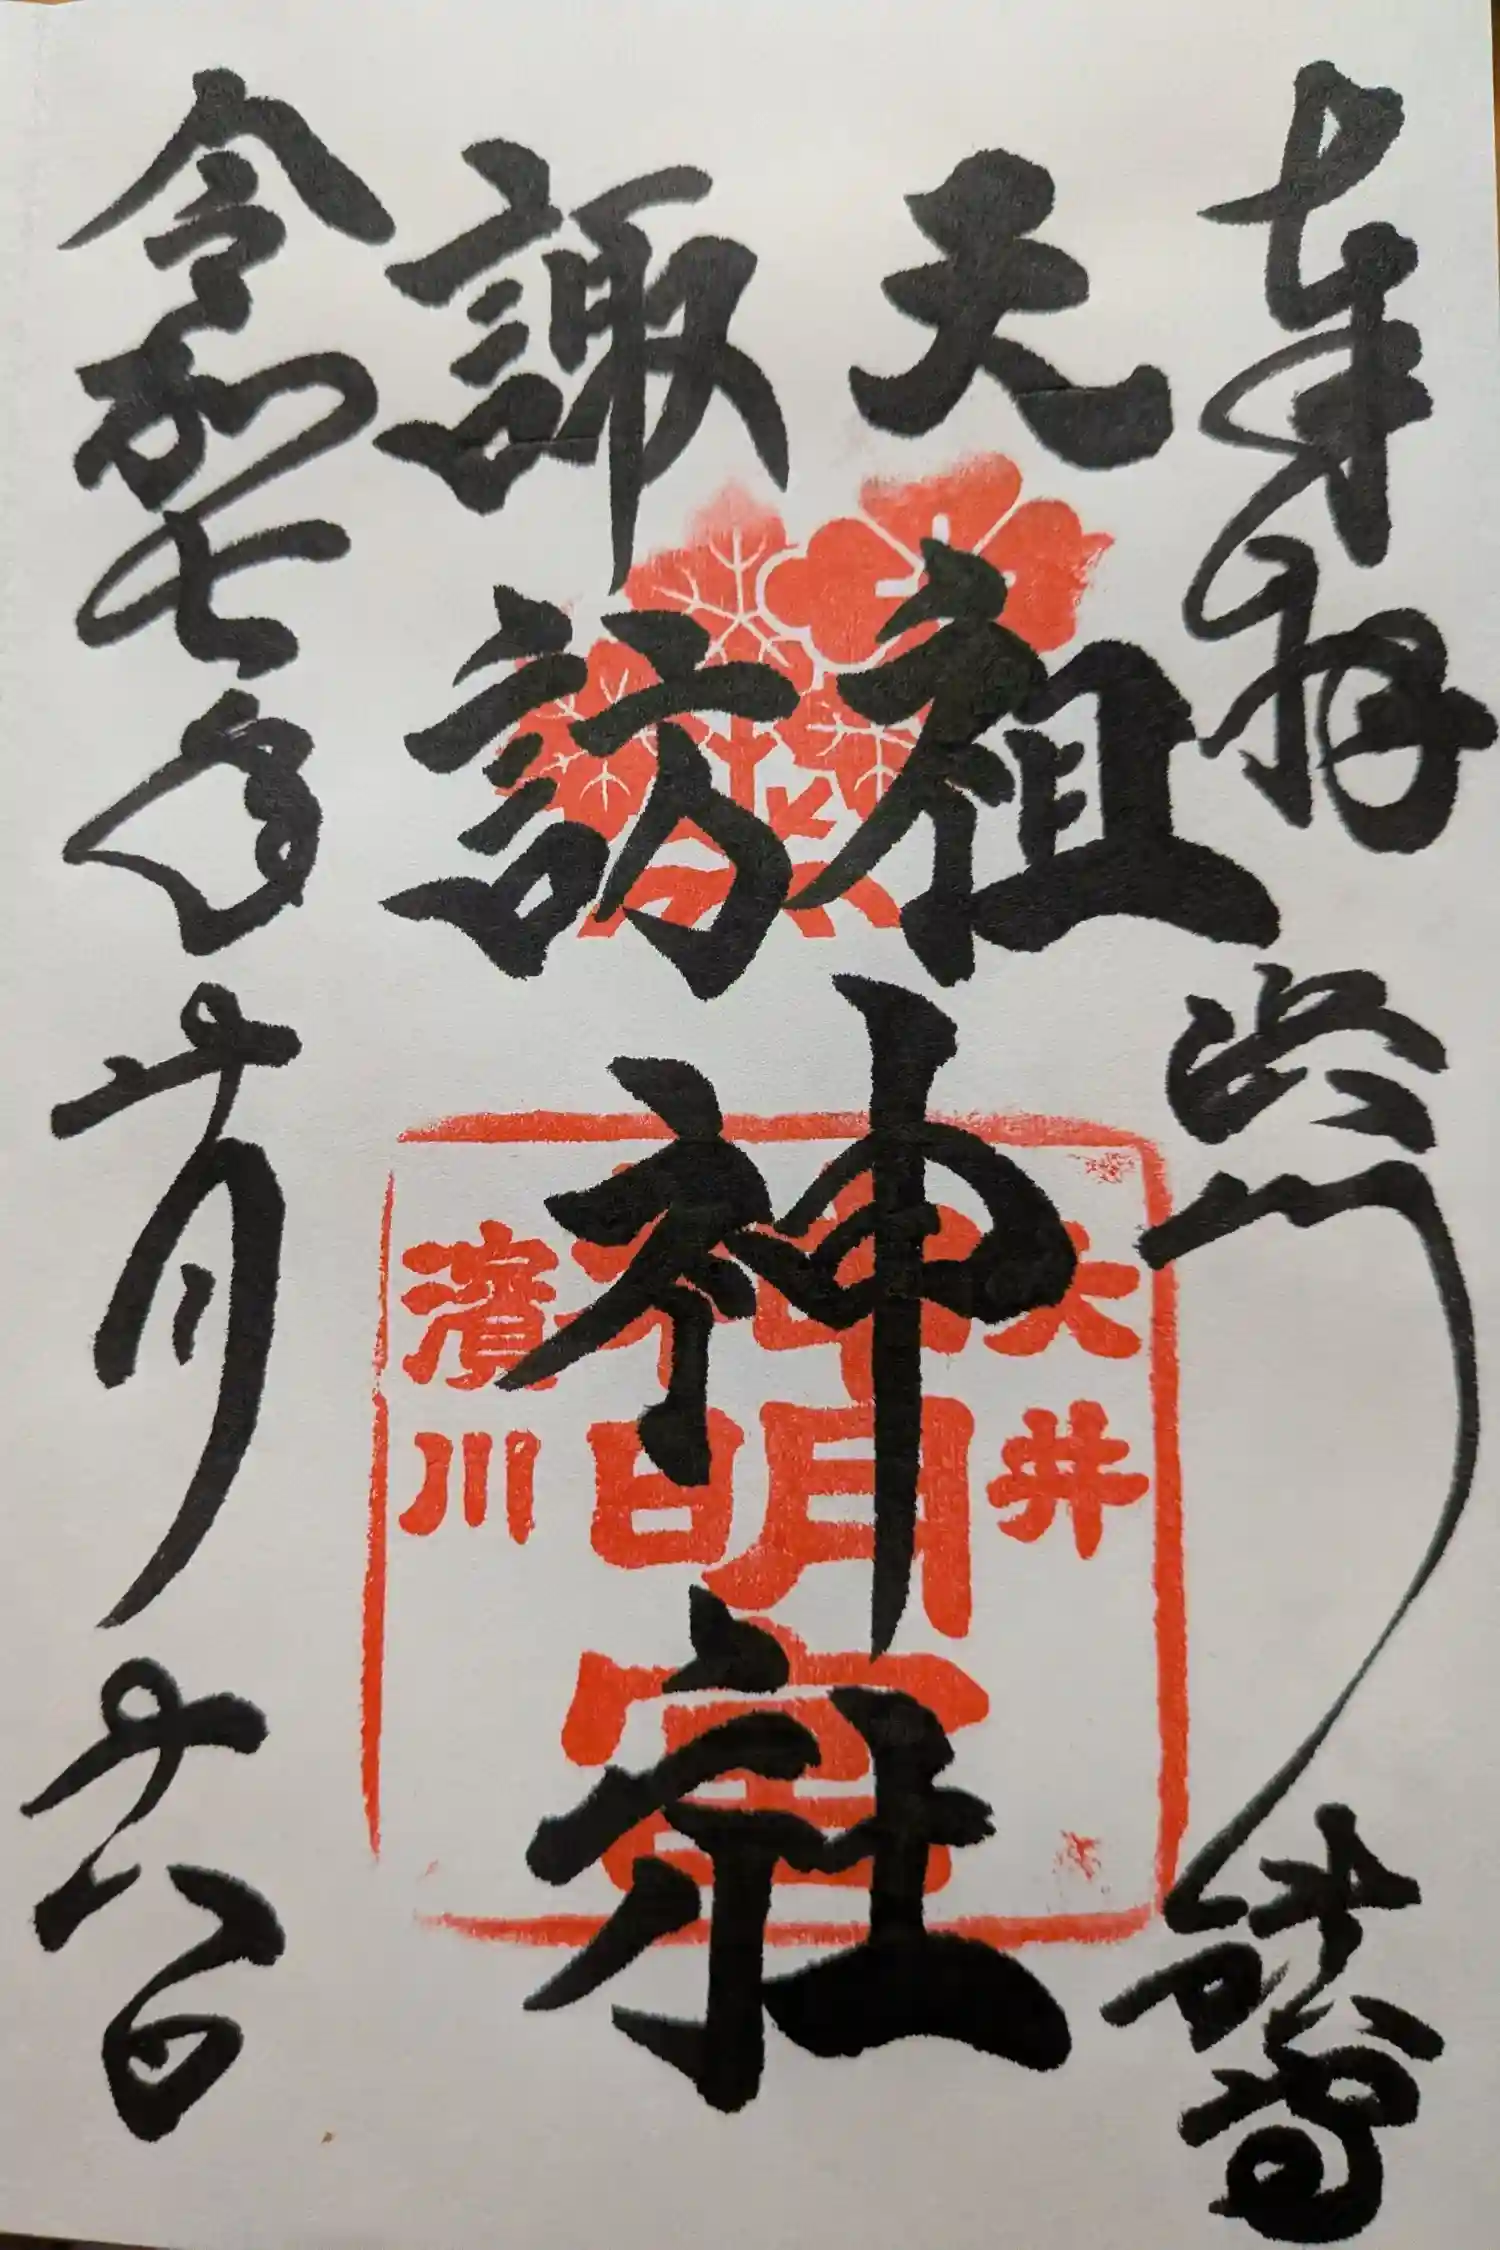 奉拝
天祖
諏訪
神社
令和七年十月十八日
大井
神明宮
濱川